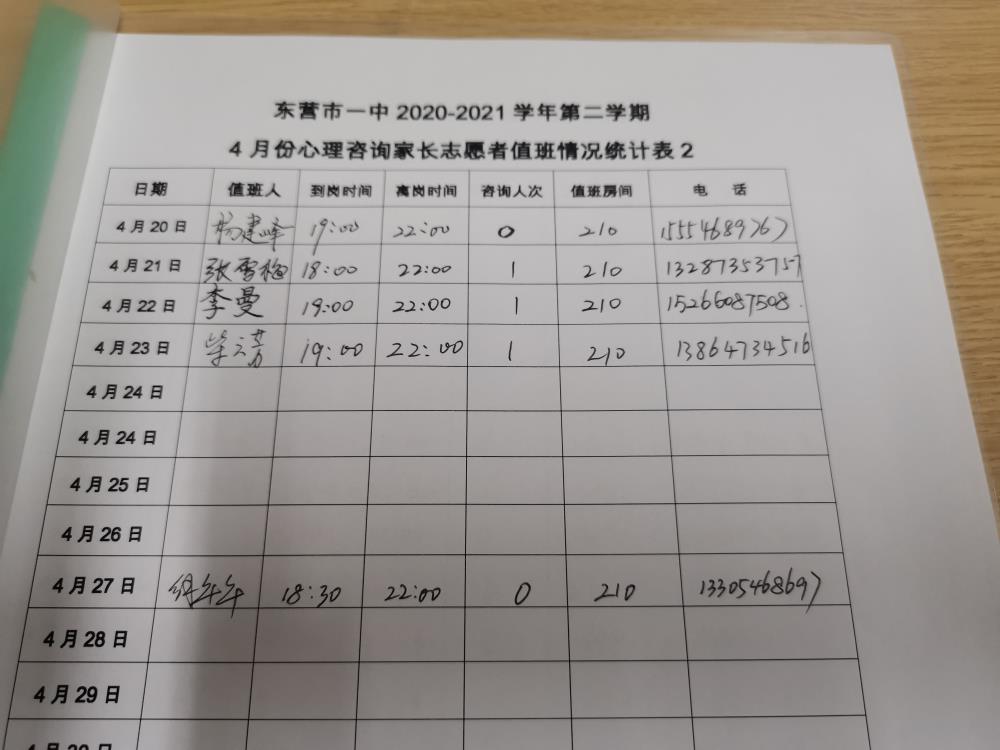 东营市一中 2020-2021 学年第二学期
4 月份心理咨询家长志愿者值班情况统计表 2
日期 值班人 到岗时间 离岗时间 咨询人次 值班房间 电 话
4 月 20 日 杨建峰 19:00 22:00 0 210 15554689767
4 月 21 日 张雪梅 18:00 22:00 1 210 13287353757
4 月 22 日 李曼 19:00 22:00 1 210 15266087508
4 月 23 日 19:00 22:00 1 210 13864734516
4 月 24 日
4 月 24 日
4 月 25 日
4 月 26 日
4 月 27 日 18:30 22:00 0 210 13305468697
4 月 28 日
4 月 29 日
4 月 30 日